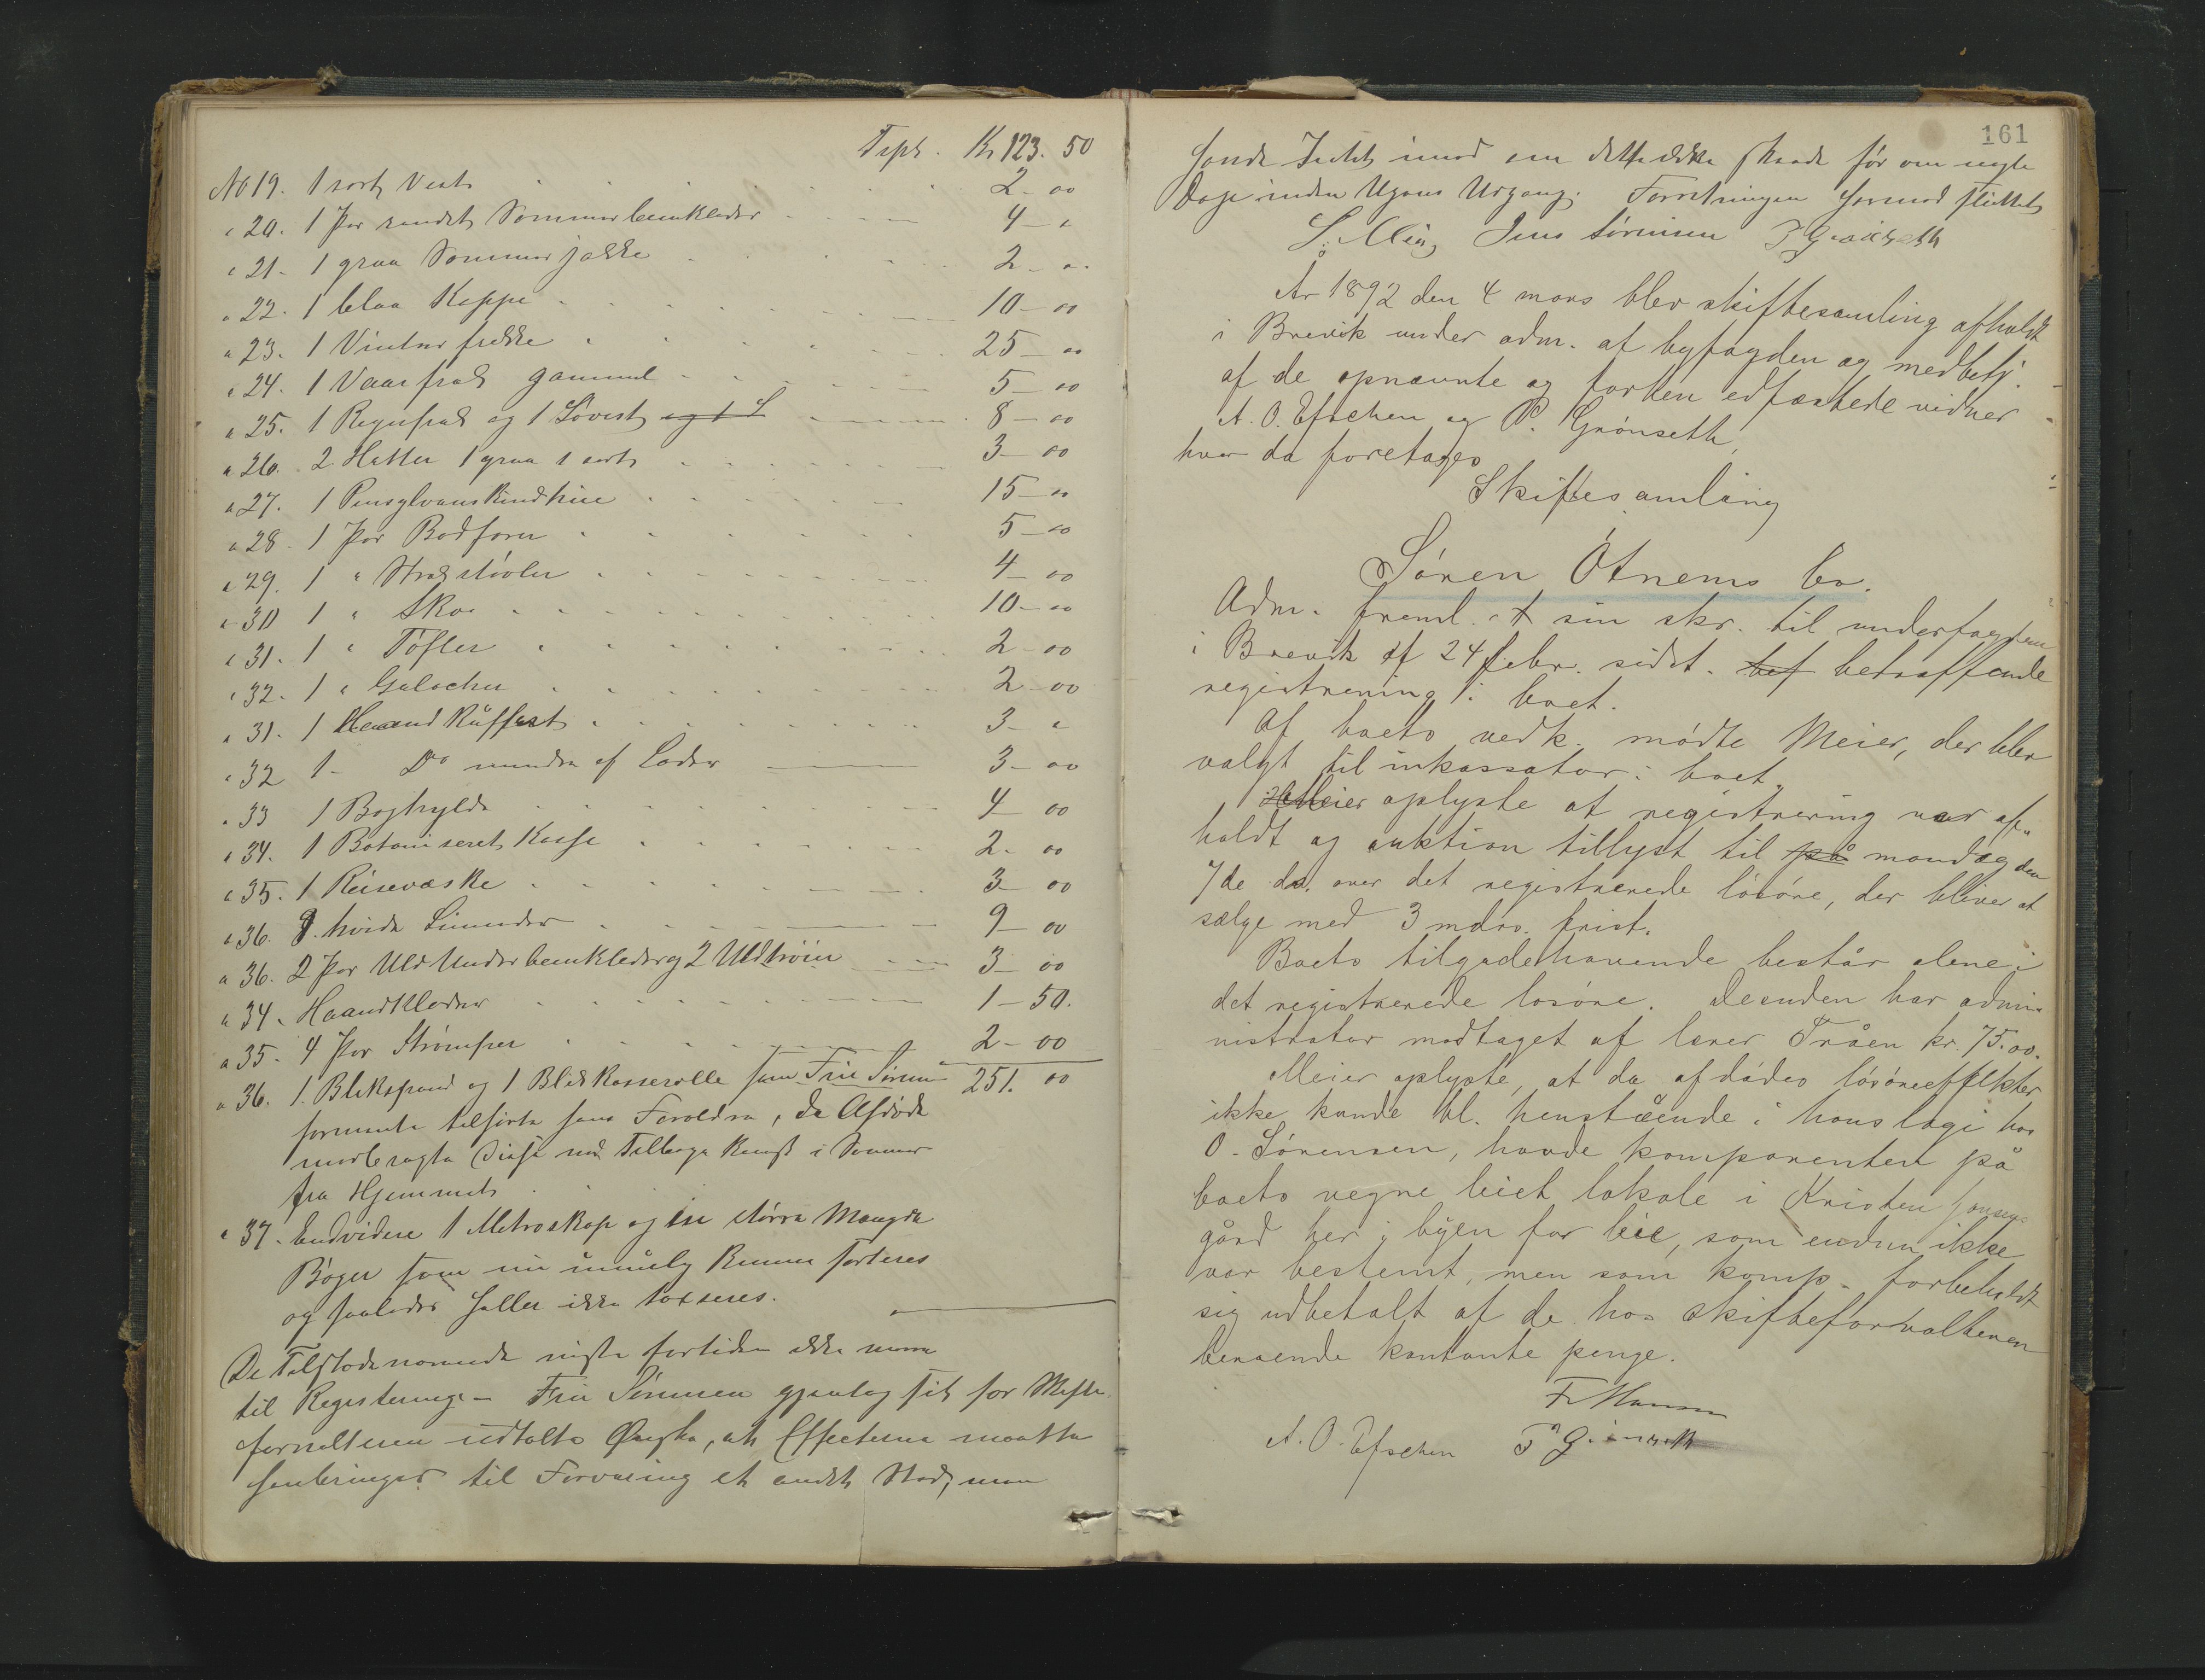 Tspt. Kr 123. 50
No 19. 1 sort Vest 2 - 00
" 20. 1 Par randet Sommerbeenklæder 4 - "
" 21 - 1 graa Sommerjakke 2 - "
" 22. 1 blaa Kappe 10 - 00
" 23. 1 Vinterfrakke 25 - 00
" 24. 1 Vaarfrak gammel 5 - 00
" 25. 1 Regnfrak og 1 Sovest og 1 S 8 - 00
" 26. 2 Hatter 1 graa 1 sort 3 - 00
" 27. 1 Pensylvanskindhue 15 - 00
" 28. 1 Par Bodforer 5 - 00
" 29. 1 " Strakstövler 4 - 00
" 30 1 " Skoe 10 - 00
" 31. 1 " Töfler 2 - 00
" 32. 1 " Galocher 2 - 00
" 31. 1 Haandkuffert 3 - "
" 32 1 - Do mindre af Læder 3 - 00
" 33 1 Boghylde 4 00
" 34. 1 Botaniseret Kasse 2 - 00
" 35. 1 Reisevæske 3 00
" 36. 9 hvide Linneder 9 - 00
" 36. 2 Par Uld Underbeenklæder og 2 Uldtröier 3 - 00
" 34. Haandklæder 1 - 50.
" 35. 4 Par Strømper 2 - 00
" 36. 1. Blikspand og 1 Blikkasserolle som Frue Sörensen 251. 00
formente tilhörte hans Foreldre, da Afdöde
medbragte Disse ved Tilbagekomst i Sommer
fra Hjemmet
" 37. Endvidere 1 Metroskop og en större Mængde
Böger som nu umulig kunne sorteres
og saaledes heller ikke taxseres.
De Tilstedeværende vidste fortiden ikke mere
til Registering - Frue Sörensen gjentog sit for Skifte
forvalteren udtalte Ønske, at Effecterne maatte
henbringes til Forvaring et andet Sted, men
161
havde Intet imod om dette ikke skeede för om nogle
Dage inden Ugens Udgang. Forretningen hermed sluttet
S. Meier Jens Sörensen P Grönseth
År 1892 den 4 mars blev skiftesamling afholdt
i Brevik under adm. af byfogden og medbetj.
af de opnævnte og forhen edfæstede vidner
A. O. Eftehen og P. Grönseth,
hvor da foretages
Skiftesamling
Sören Ötnems bo.
Adm. freml. sin skr. til underfogden
i Brevik af 24 febr. sidst. bef betræffende
registrering i boet.
Af boets vedk. mödte Meier, der blev
valgt til inkassator i boet.
Meier oplyste at registrering var af-
holdt og auktion tillyst til på mandag den
7de ds. over det registrerede lösöre, der bliver at
sælge med 3 mdrs. frist.
Boets tilgodehavende består alene i
det registrerede losöre. Desuden har admi-
nistrator modtaget af lærer Tråen kr. 75.00.
Meier oplyste, at da afdödes lösöreeffekter
ikke kunde bl. henstående i hans logi hos
O. Sörensen, havde komparenten på
boets vegne leiet lokale i Kristen Jansens
gård her i byen for leie, som endnu ikke
var bestemt, men som komp. forbeholdt
sig udbetalt af de hos skifteforvalteren
beroende kontante penge.
Fr Hansen
A. O. Eftehen P Grönseth